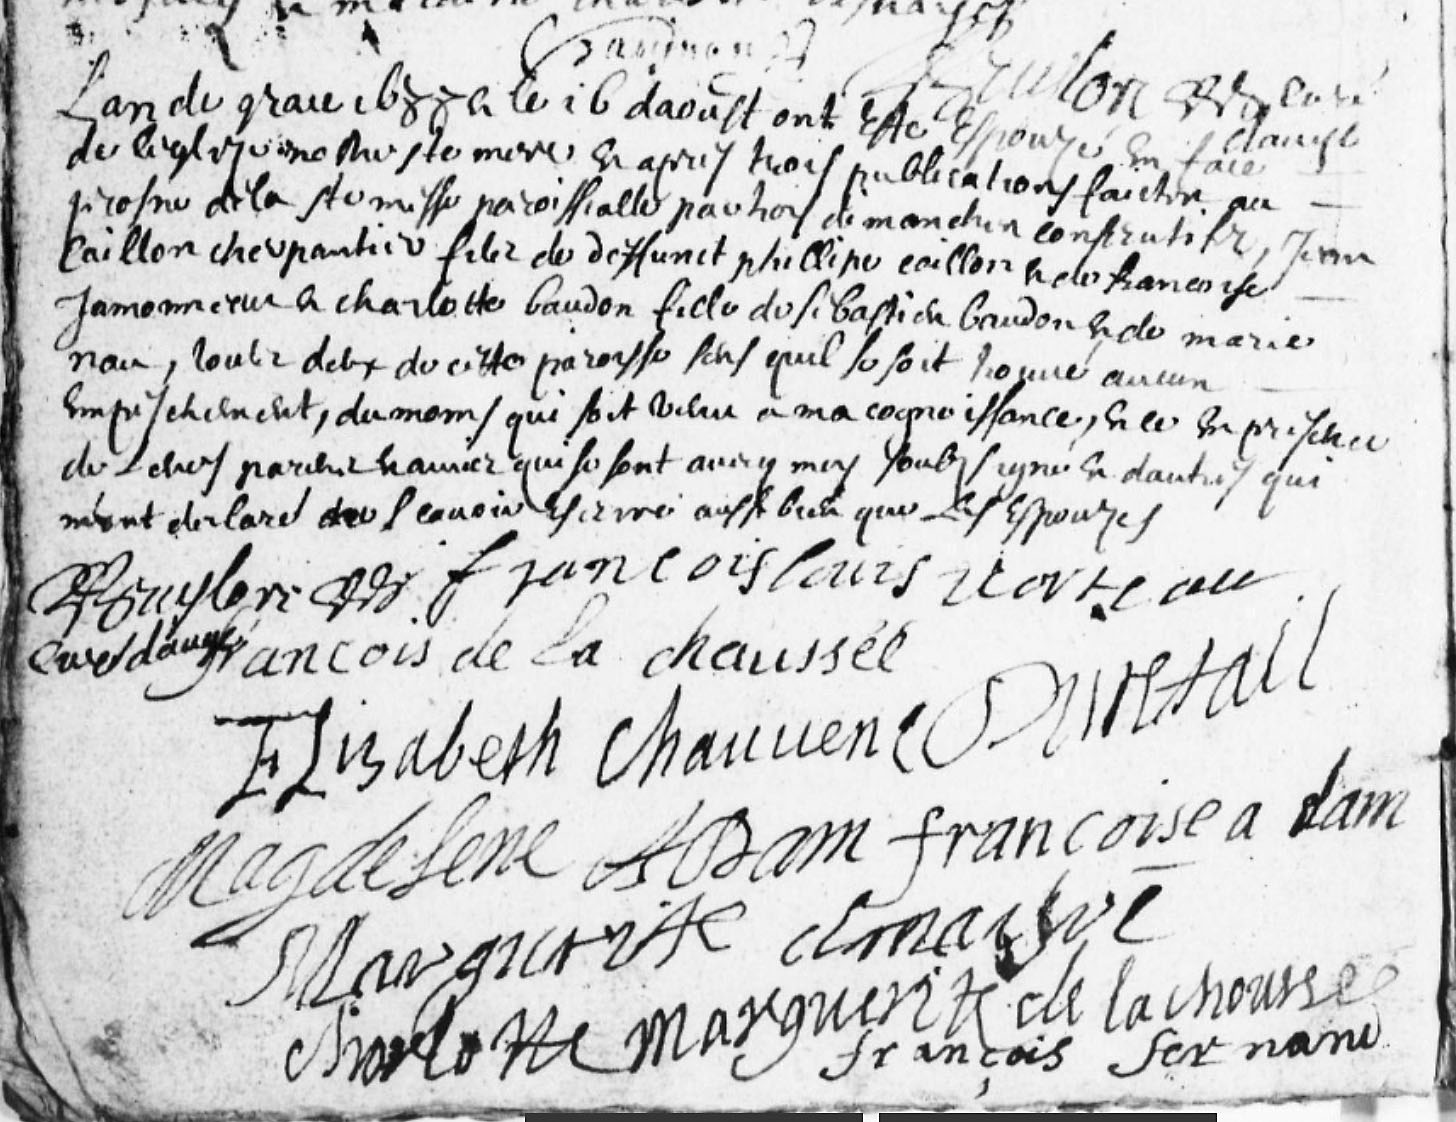 Lan de grace 16 & le 16 daoust ont Esté Espouzé En face
de leglize nostre ste mere & apres trois publications faictes au
prosne de la ste messe paroissialle par trois dimanches consecutifz, Jean
Caillon charpantier filz de deffunct phillipe caillon & de francoise
Jamonneau & charlotte baudon fille de sebastien baudon & de marie
nau, toutz deux de cette paroisse sans quil se soit trouvé aucun
Empeschement, du moins qui soit venu a ma cognoissance, & ce En presence
de leurs parens & amis qui se sont avecq moy soubz signé & dautres qui
mont declaré de scavoir Escrire aussi bien que les Espouzes
curé dauge
francois louis
francois de la chaussée
Elizabeth Chauuene
Magdelene Adam francoise adam
Marguerite
Charlotte Marguerite de la chousse
françois fernand